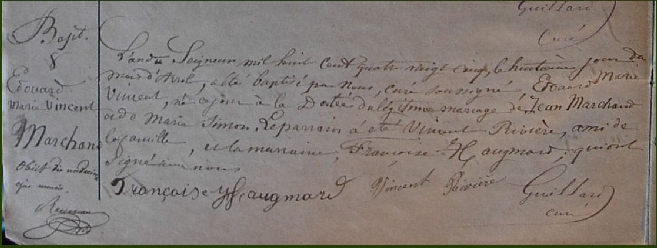 Guillard
Curé
Bapt.
8
Edouard
Marie Vincent
Marchand
L'an du Seigneur mil huit cent quatre vingt cinq, le huitième jour du
mois d'Avril, a été baptisé par nous, curé soussigné, Edouard Marie
Vincent, né ce jour à la D du légitime mariage de Jean Marchand
et de Marie Simon, Le parrain a été Vincent Rivière, ami de
la famille, et la marraine, Françoise Haugmard, qui ont
signé avec nous.
Françoise Haugmard Vincent Rivière Guillard
curé